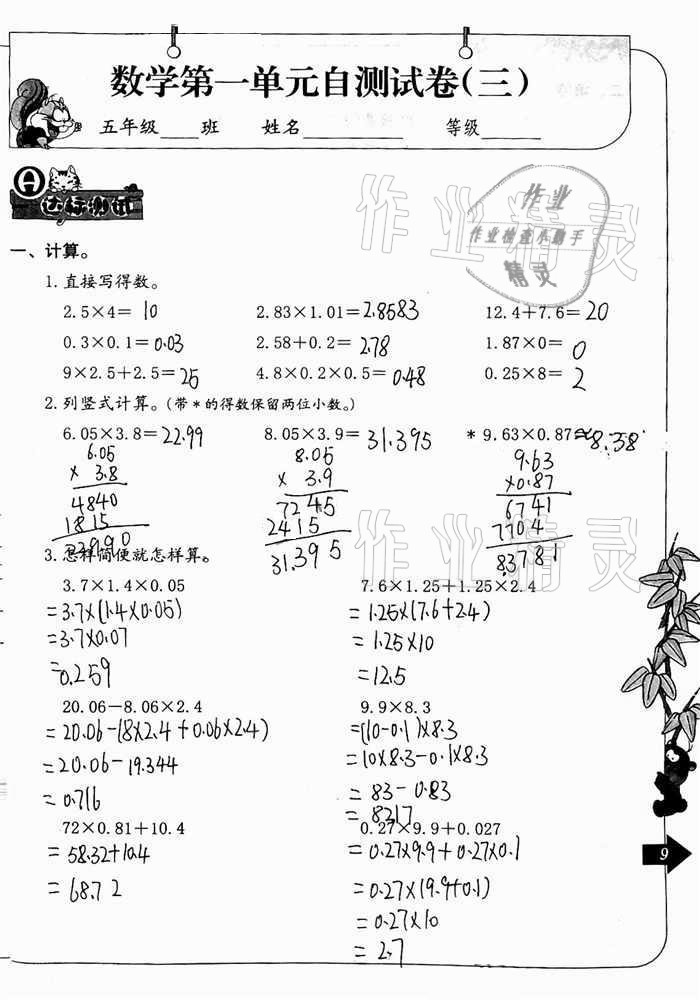 数学第一单元自测试卷(三)
五年级____班 姓名__________ 等级______
A
达标测试
作业精灵
作业
作业检查小助手
精灵
一、计算。
1.直接写得数。
2.5×4= 10 2.83×1.01=2.8583 12.4+7.6= 20
0.3×0.1= 0.03 2.58+0.2= 2.78 1.87×0= 0
9×2.5+2.5= 25 4.8×0.2×0.5= 0.48 0.25×8= 2
2.列竖式计算。(带*的得数保留两位小数。)
6.05×3.8= 22.99 8.05×3.9= 31.395 *9.63×0.87≈8.38
6.05 8.05 9.63
× 3.8 × 3.9 ×0.87
4840 7245 6741
1815 2415 7704
22990 31.395 83781
作业精灵
3.怎样简便就怎样算。
3.7×1.4×0.05 7.6×1.25+1.25×2.4
=3.7×(1.4×0.05) =1.25×(7.6+2.4)
=3.7×0.07 =1.25×10
=0.259 =12.5
20.06-8.06×2.4 9.9×8.3
=20.06-(8×2.4+0.06×2.4) =(10-0.1)×8.3
=20.06-19.344 =10×8.3-0.1×8.3
=0.716 =83-0.83
=8217
72×0.81+10.4 0.27×9.9+0.027
=58.32+10.4 =0.27×9.9+0.27×0.1
=68.72 =0.27×(9.9+0.1)
=0.27×10
=2.7
9